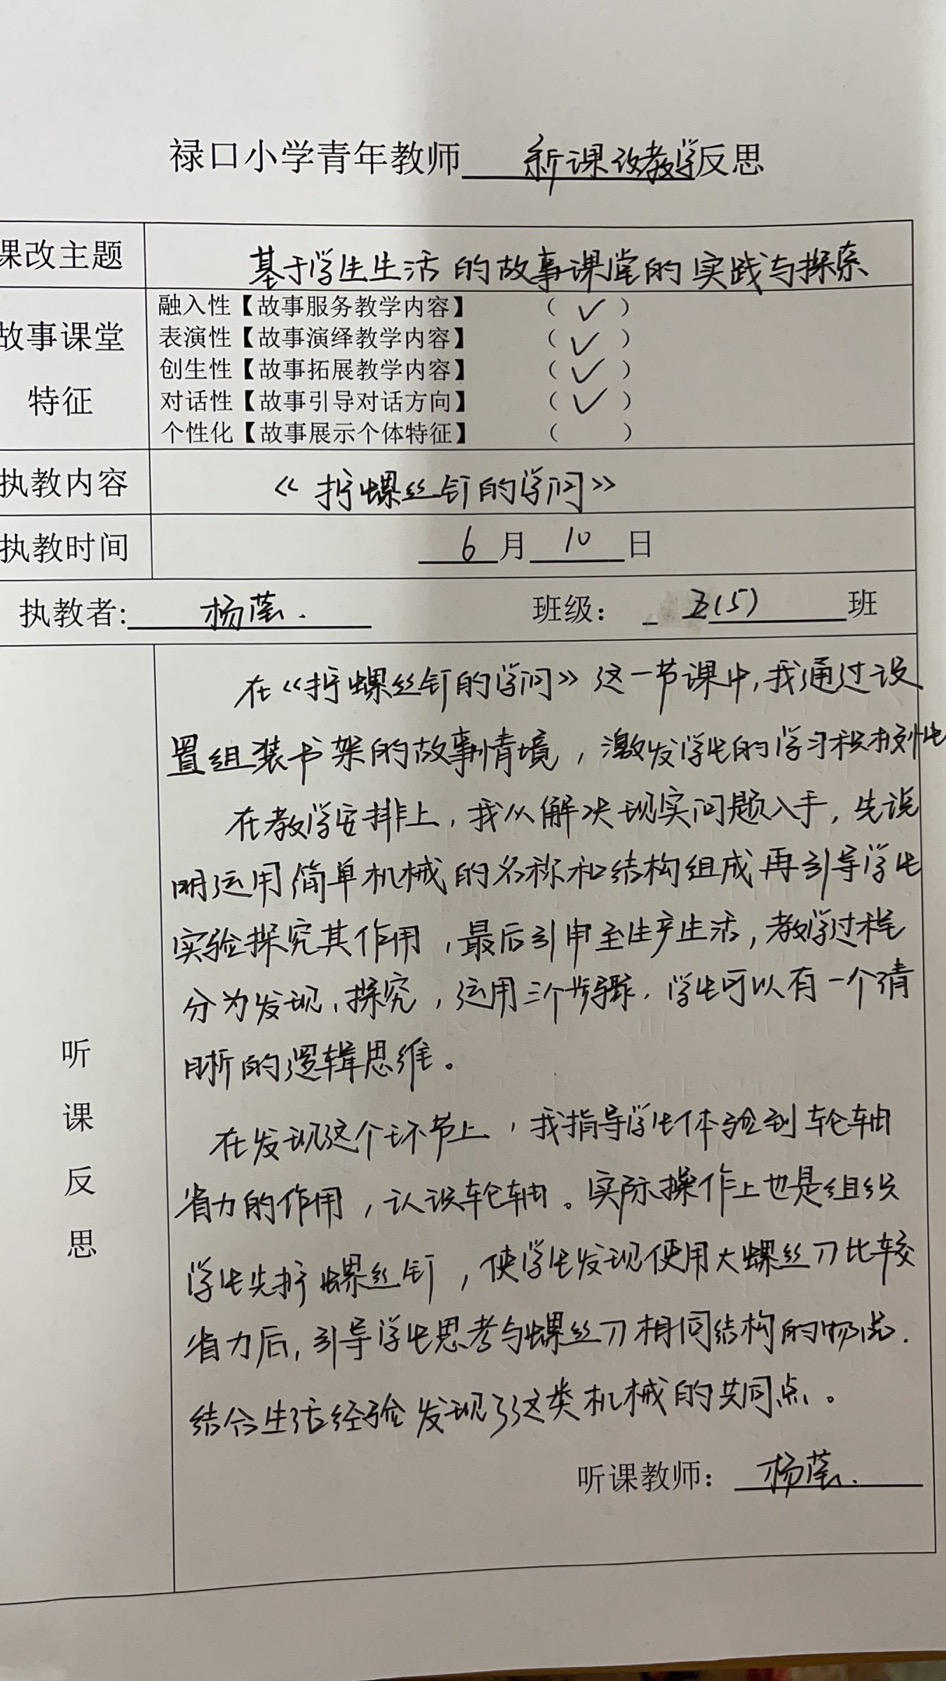 禄口小学青年教师 新课改教学反思
课改主题 基于学生生活的故事课堂的实践与探索
故事课堂特征
融入性【故事服务教学内容】 (✓)
表演性【故事演绎教学内容】 (✓)
创生性【故事拓展教学内容】 (✓)
对话性【故事引导对话方向】 (✓)
个性化【故事展示个体特征】 ( )
执教内容 《拧螺丝钉的学问》
执教时间 6月10日
执教者: 杨莹. 班级: 五(5)班
听课反思
在《拧螺丝钉的学问》这一节课中,我通过设
置组装书架的故事情境,激发学生的学习积极性
在教学安排上,我从解决现实问题入手,先说
明运用简单机械的名称和结构组成再引导学生
实验探究其作用,最后引申至生产生活,教学过程
分为发现、探究,运用三个步骤.学生可以有一个清
晰的逻辑思维。
在发现这个环节上,我指导学生体验到轮轴
省力的作用,认识轮轴。实际操作上也是组织
学生先拧螺丝钉,使学生发现使用大螺丝刀比较
省力后,引导学生思考与螺丝刀相同结构的物品.
结合生活经验发现了这类机械的共同点。
听课教师: 杨莹.